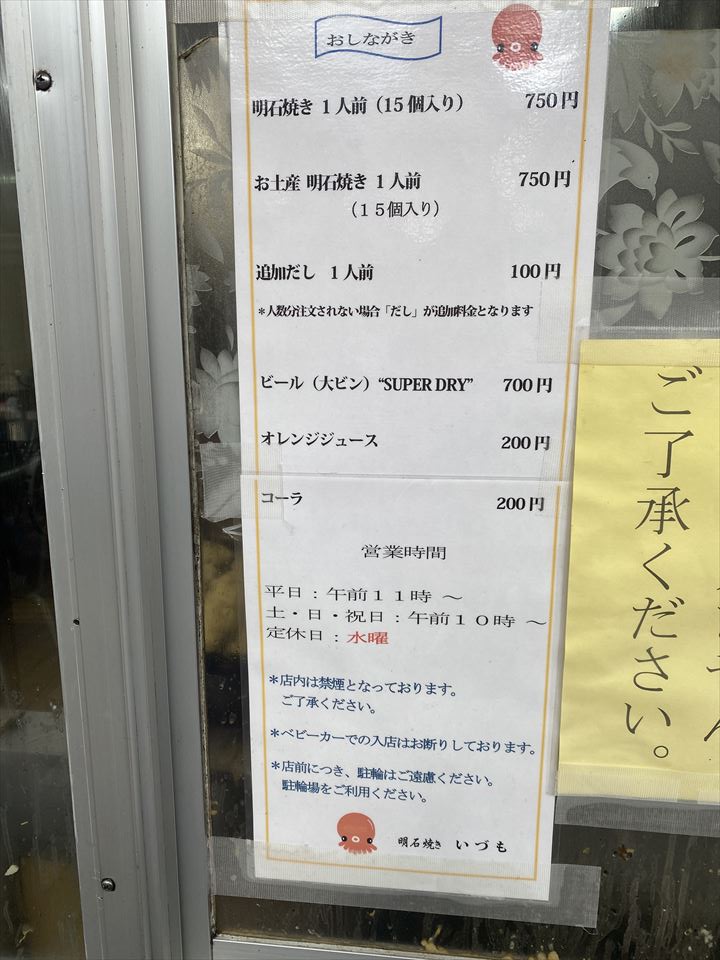 おしながき
明石焼き 1人前（15個入り） 750円
お土産 明石焼き 1人前 750円
（１５個入り）
追加だし 1人前 100円
＊人数分注文されない場合「だし」が追加料金となります
ビール（大ビン）“SUPER DRY” 700円
オレンジジュース 200円
コーラ 200円
営業時間
平日：午前１１時 ～
土・日・祝日：午前１０時 ～
定休日：水曜
＊店内は禁煙となっております。
ご了承ください。
＊ベビーカーでの入店はお断りしております。
＊店前につき、駐輪はご遠慮ください。
駐輪場をご利用ください。
明石焼き いづも
ご了承ください。